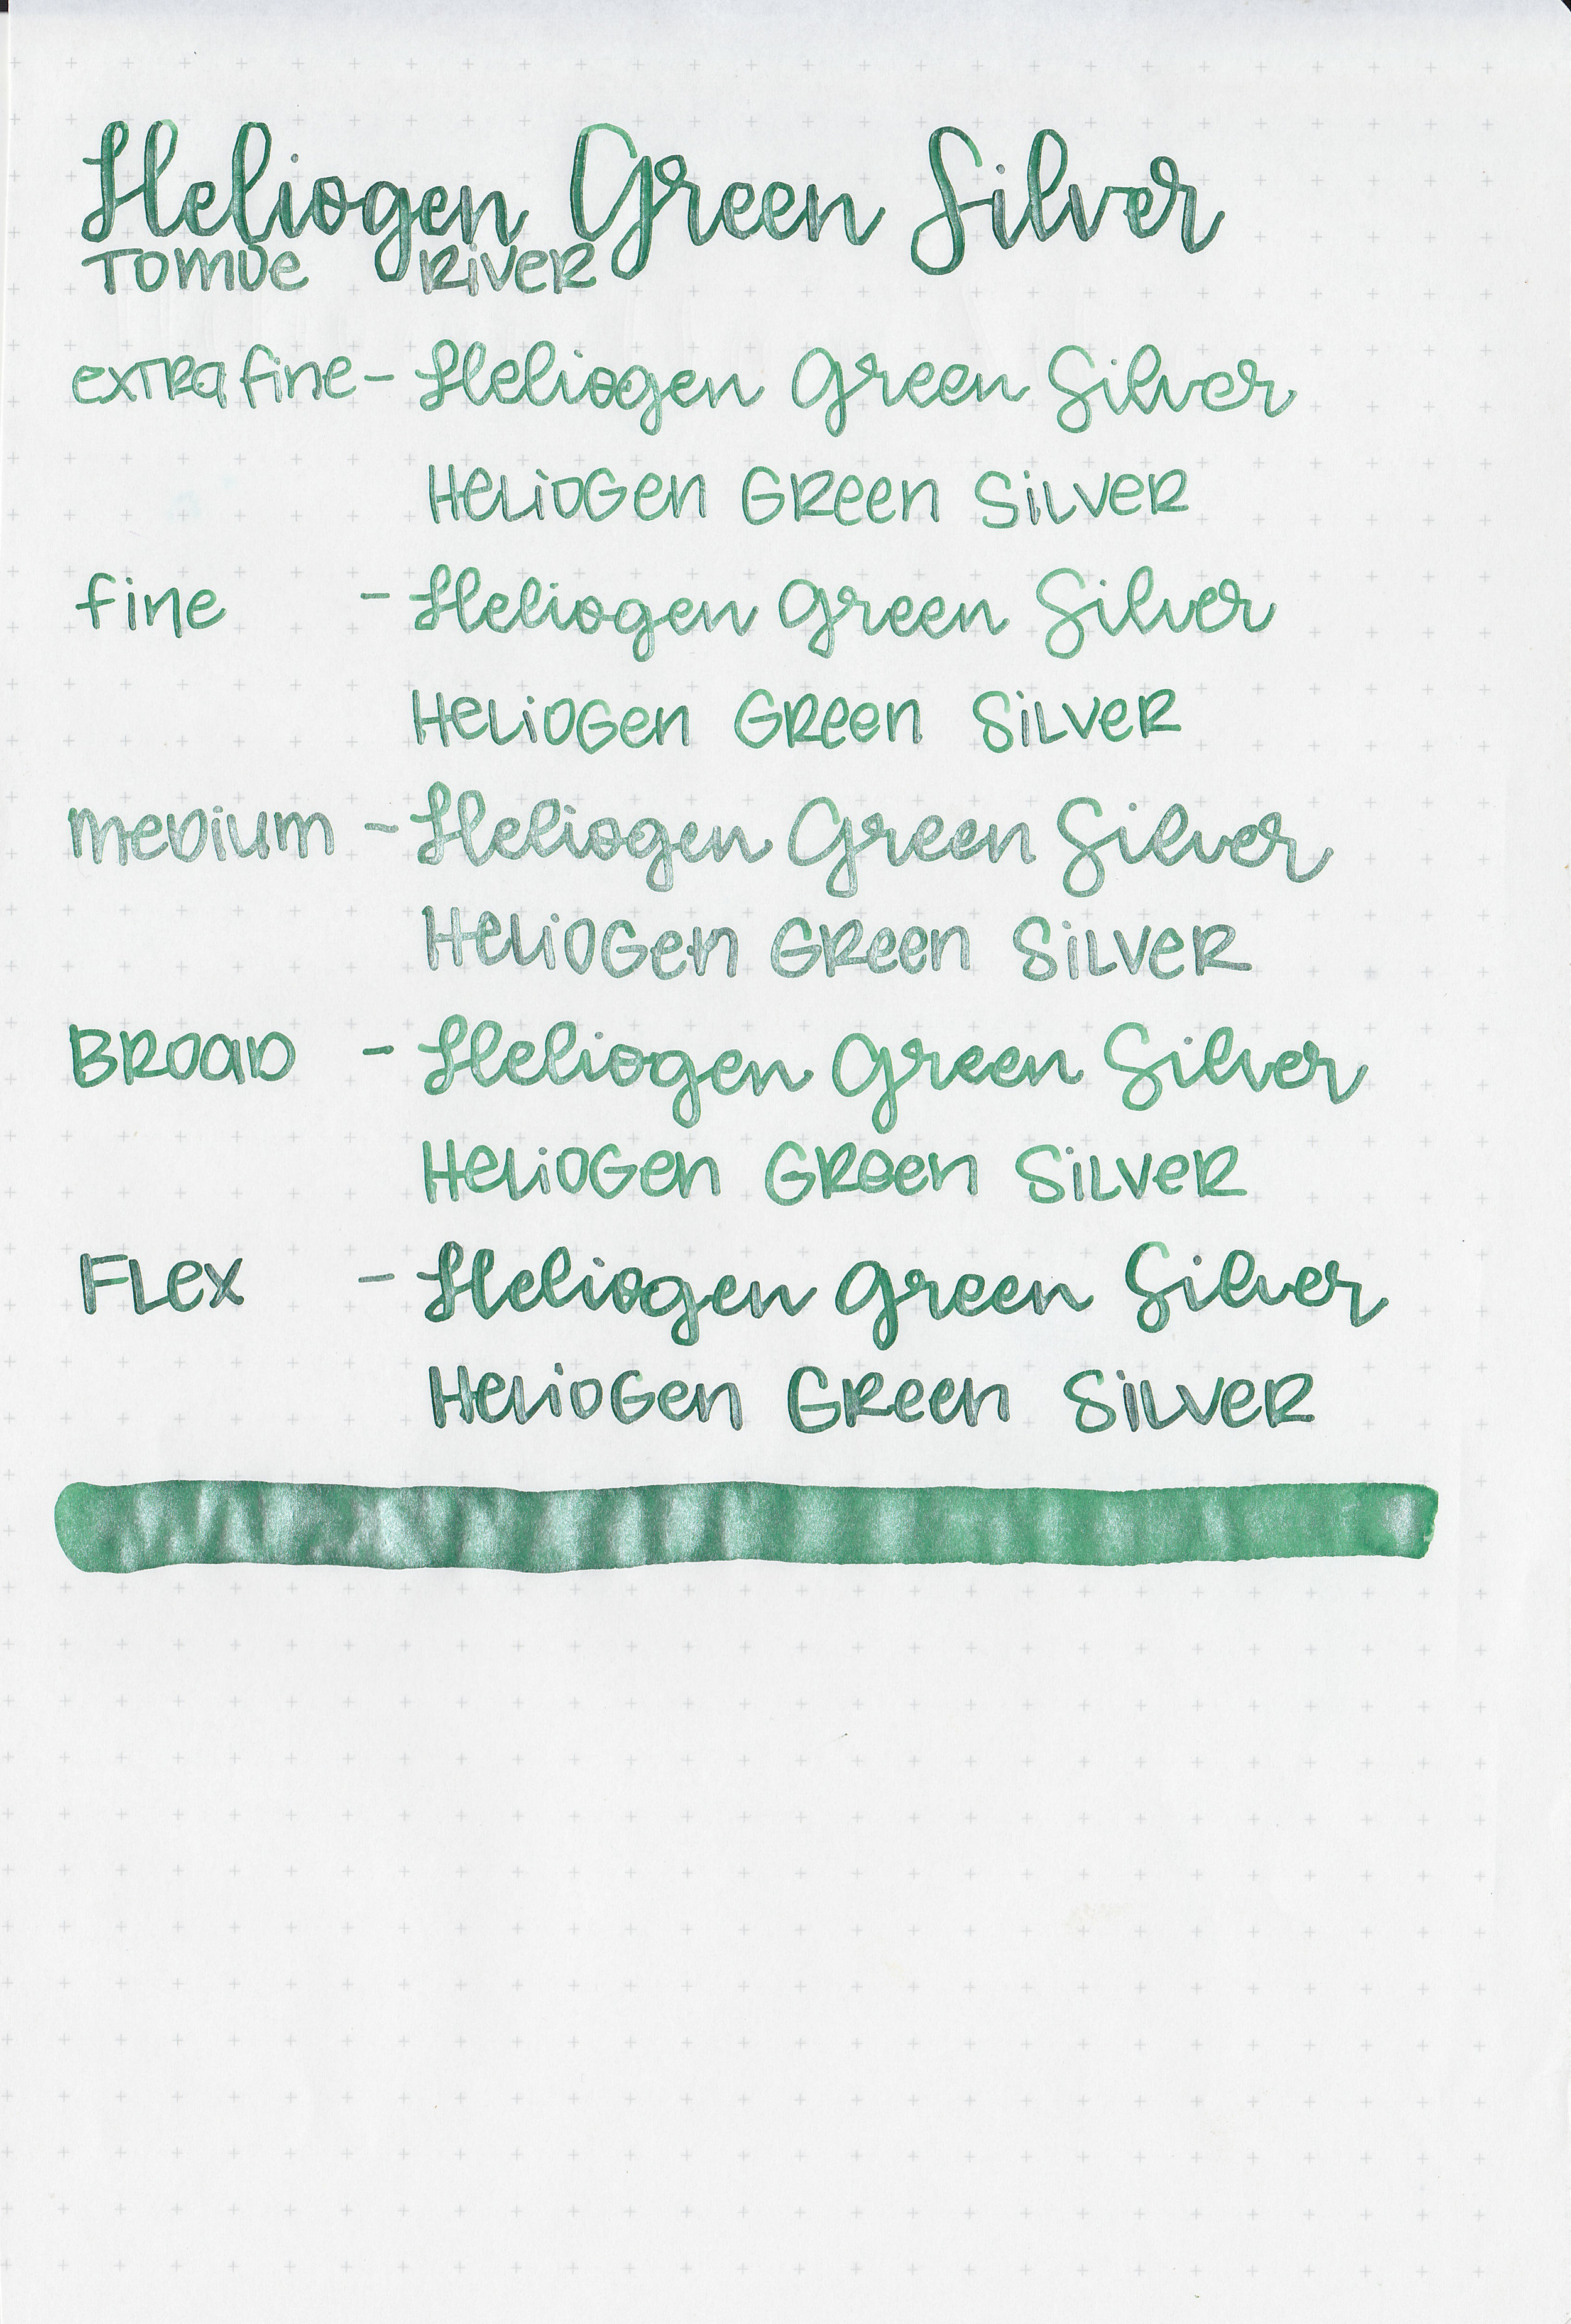 Heliogen Green Silver
TOMOE RIVER
extra fine - Heliogen Green Silver
HELIOGEN GREEN SILVER
fine - Heliogen Green Silver
HELIOGEN GREEN SILVER
MEDIUM - Heliogen Green Silver
HELIOGEN GREEN SILVER
BROAD - Heliogen Green Silver
HELIOGEN GREEN SILVER
FLEX - Heliogen Green Silver
HELIOGEN GREEN SILVER